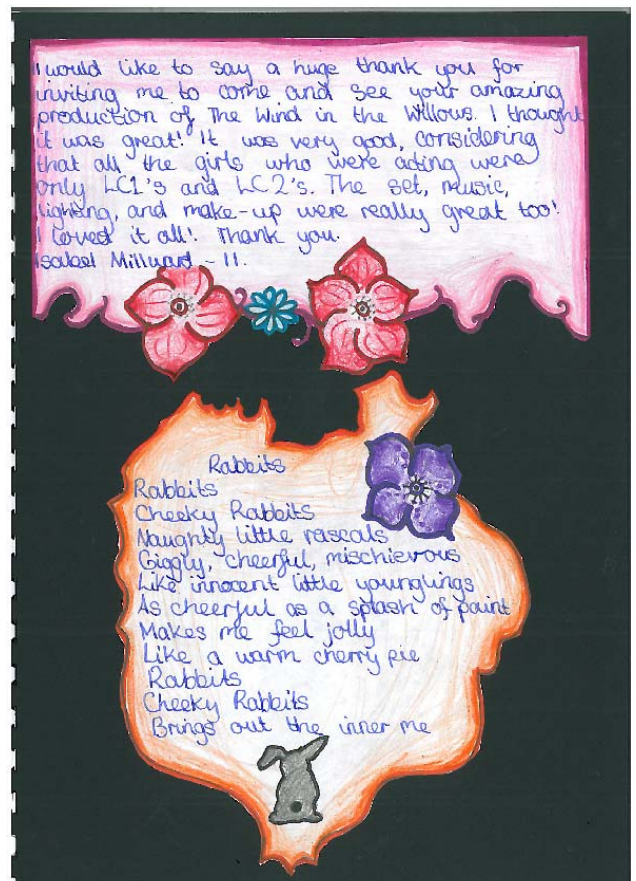 I would like to say a huge thank you for
inviting me to come and see your amazing
production of The Wind in the Willows. I thought
it was great! It was very good, considering
that all the girls who were acting were
only LC1's and LC2's. The set, music,
lighting, and make-up were really great too!
I loved it all! Thank you.
Isabel Millward - 11.
Rabbits
Rabbits
Cheeky Rabbits
Naughty little rascals
Giggly, cheerful, mischievous
Like innocent little younglings
As cheerful as a splash of paint
Makes me feel jolly
Like a warm cherry pie
Rabbits
Cheeky Rabbits
Brings out the inner me